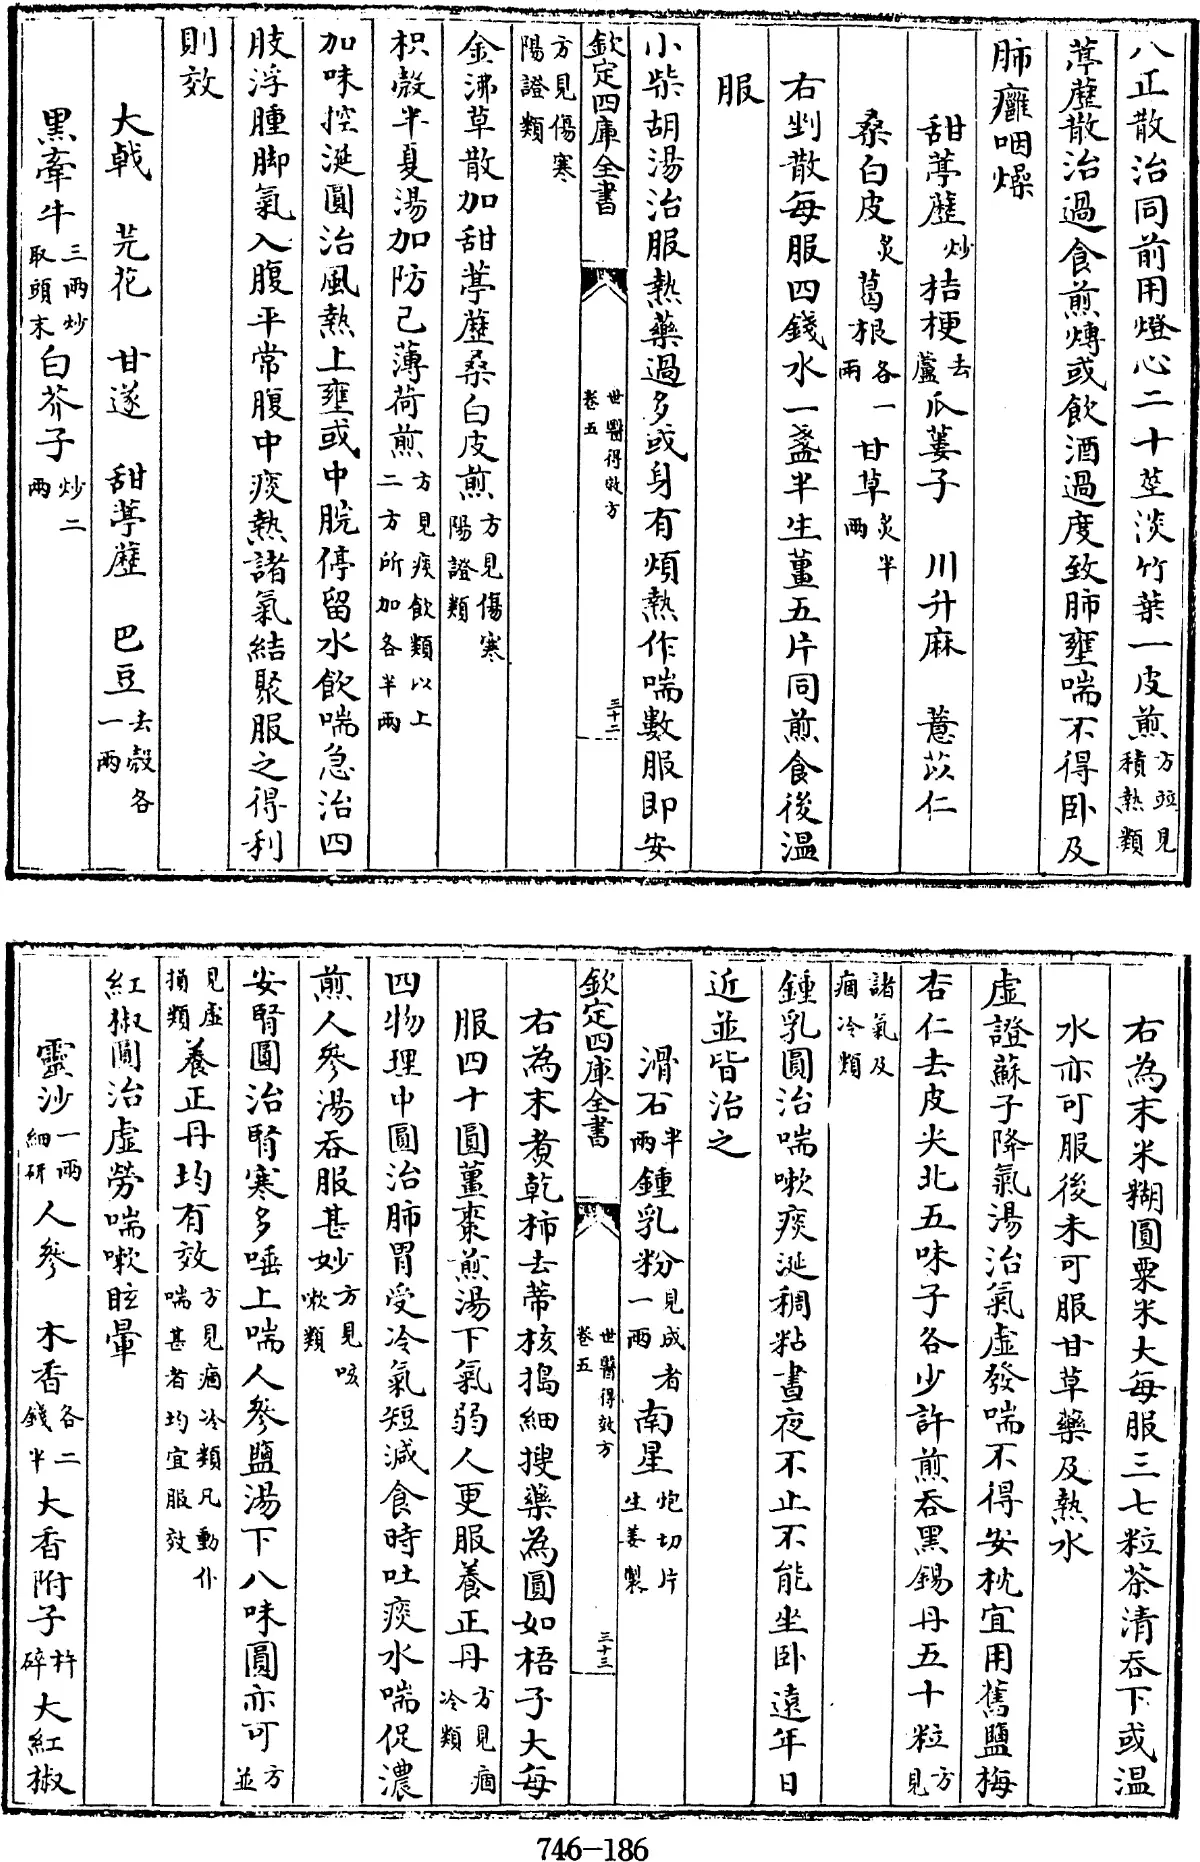 八正散治同前用燈心二十莖淡竹葉一皮煎方竝見積熱類
葶藶散治過食煎煿或飲酒過度致肺壅喘不得卧及
肺癰咽燥
甜葶藶炒桔梗去蘆瓜蔞子 川升麻 薏苡仁
桑白皮炙葛根各一兩甘草炙半兩
右剉散每服四錢水一盞半生薑五片同煎食後温
服
小柴胡湯治服熱藥過多或身有煩熱作喘數服即安
欽定四庫全書 世醫得效方 卷五 三十二
方見傷寒陽證類
金沸草散加甜葶藶桑白皮煎方見傷寒陽證類
枳殼半夏湯加防己薄荷煎方見痰飲類以上二方所加各半兩
加味控涎圓治風熱上壅或中脘停留水飲喘急治四
肢浮腫脚氣入腹平常腹中痰熱諸氣結聚服之得利
則效
大戟 芫花 甘遂 甜葶藶 巴豆去殼各一兩
黑牽牛三兩炒取頭末白芥子炒二兩
右為末米糊圓粟米大每服三七粒茶清吞下或温
水亦可服後未可服甘草藥及熱水
虛證蘇子降氣湯治氣虛發喘不得安枕宜用舊鹽梅
杏仁去皮尖北五味子各少許煎吞黑錫丹五十粒方見
諸氣及痼冷類
鍾乳圓治喘嗽痰涎稠粘晝夜不止不能坐卧遠年日
近並皆治之
滑石半兩鍾乳粉見成者一兩南星炮切片生姜製
欽定四庫全書 世醫得效方 卷五 三十三
右為末煑乾柿去蒂核搗細搜藥為圓如梧子大每
服四十圓薑棗煎湯下氣弱人更服養正丹方見痼冷類
四物理中圓治肺胃受冷氣短減食時吐痰水喘促濃
煎人參湯吞服甚妙方見咳嗽類
安腎圓治腎寒多唾上喘人參鹽湯下八味圓亦可方並
見虛損類養正丹均有效方見痼冷類凡動作喘甚者均宜服效
紅椒圓治虛勞喘嗽眩暈
靈沙一兩細研人參 木香各二錢半大香附子杵碎大紅椒
746-186